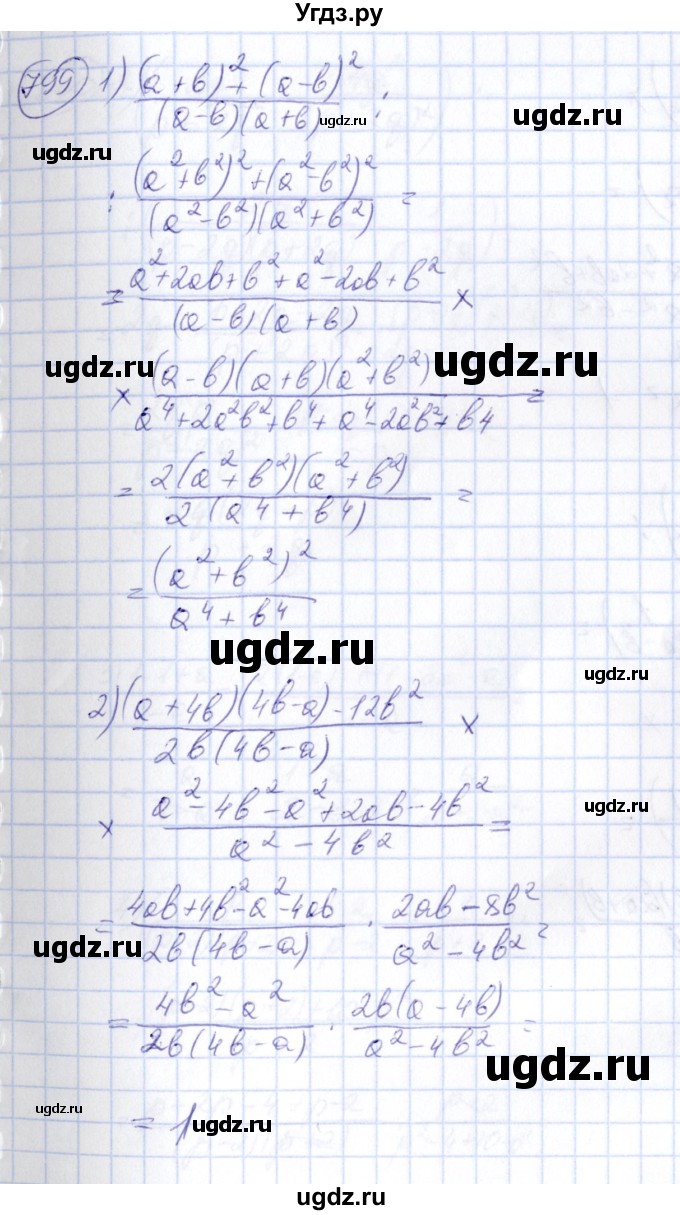 Угдз.ру
799 1) ((a+b)² + (a-b)²)/((a-b)(a+b)) :
ugdz.ru
ugdz.ru
ugdz.ru
: ((a²+b²)² + (a²-b²)²)/((a²-b²)(a²+b²)) =
= (a²+2ab+b²+a²-2ab+b²)/((a-b)(a+b)) ×
ugdz.ru
ugdz.ru
× ((a-b)(a+b)(a²+b²))/(a⁴+2a²b²+b⁴+a⁴-2a²b²+b⁴) =
= (2(a²+b²)(a²+b²))/(2(a⁴+b⁴)) =
= (a²+b²)²/(a⁴+b⁴)
ugdz.ru
ugdz.ru
2) ((a+4b)(4b-a)-12b²)/(2b(4b-a)) ×
× (a²-4b²-a²+2ab-4b²)/(a²-4b²) =
ugdz.ru
= (4ab+4b²-a²-4ab)/(2b(4b-a)) · (2ab-8b²)/(a²-4b²) =
ugdz.ru
ugdz.ru
= (4b²-a²)/(2b(4b-a)) · (2b(a-4b))/(a²-4b²) =
ugdz.ru
ugdz.ru
= 1
ugdz.ru
ugdz.ru
ugdz.ru